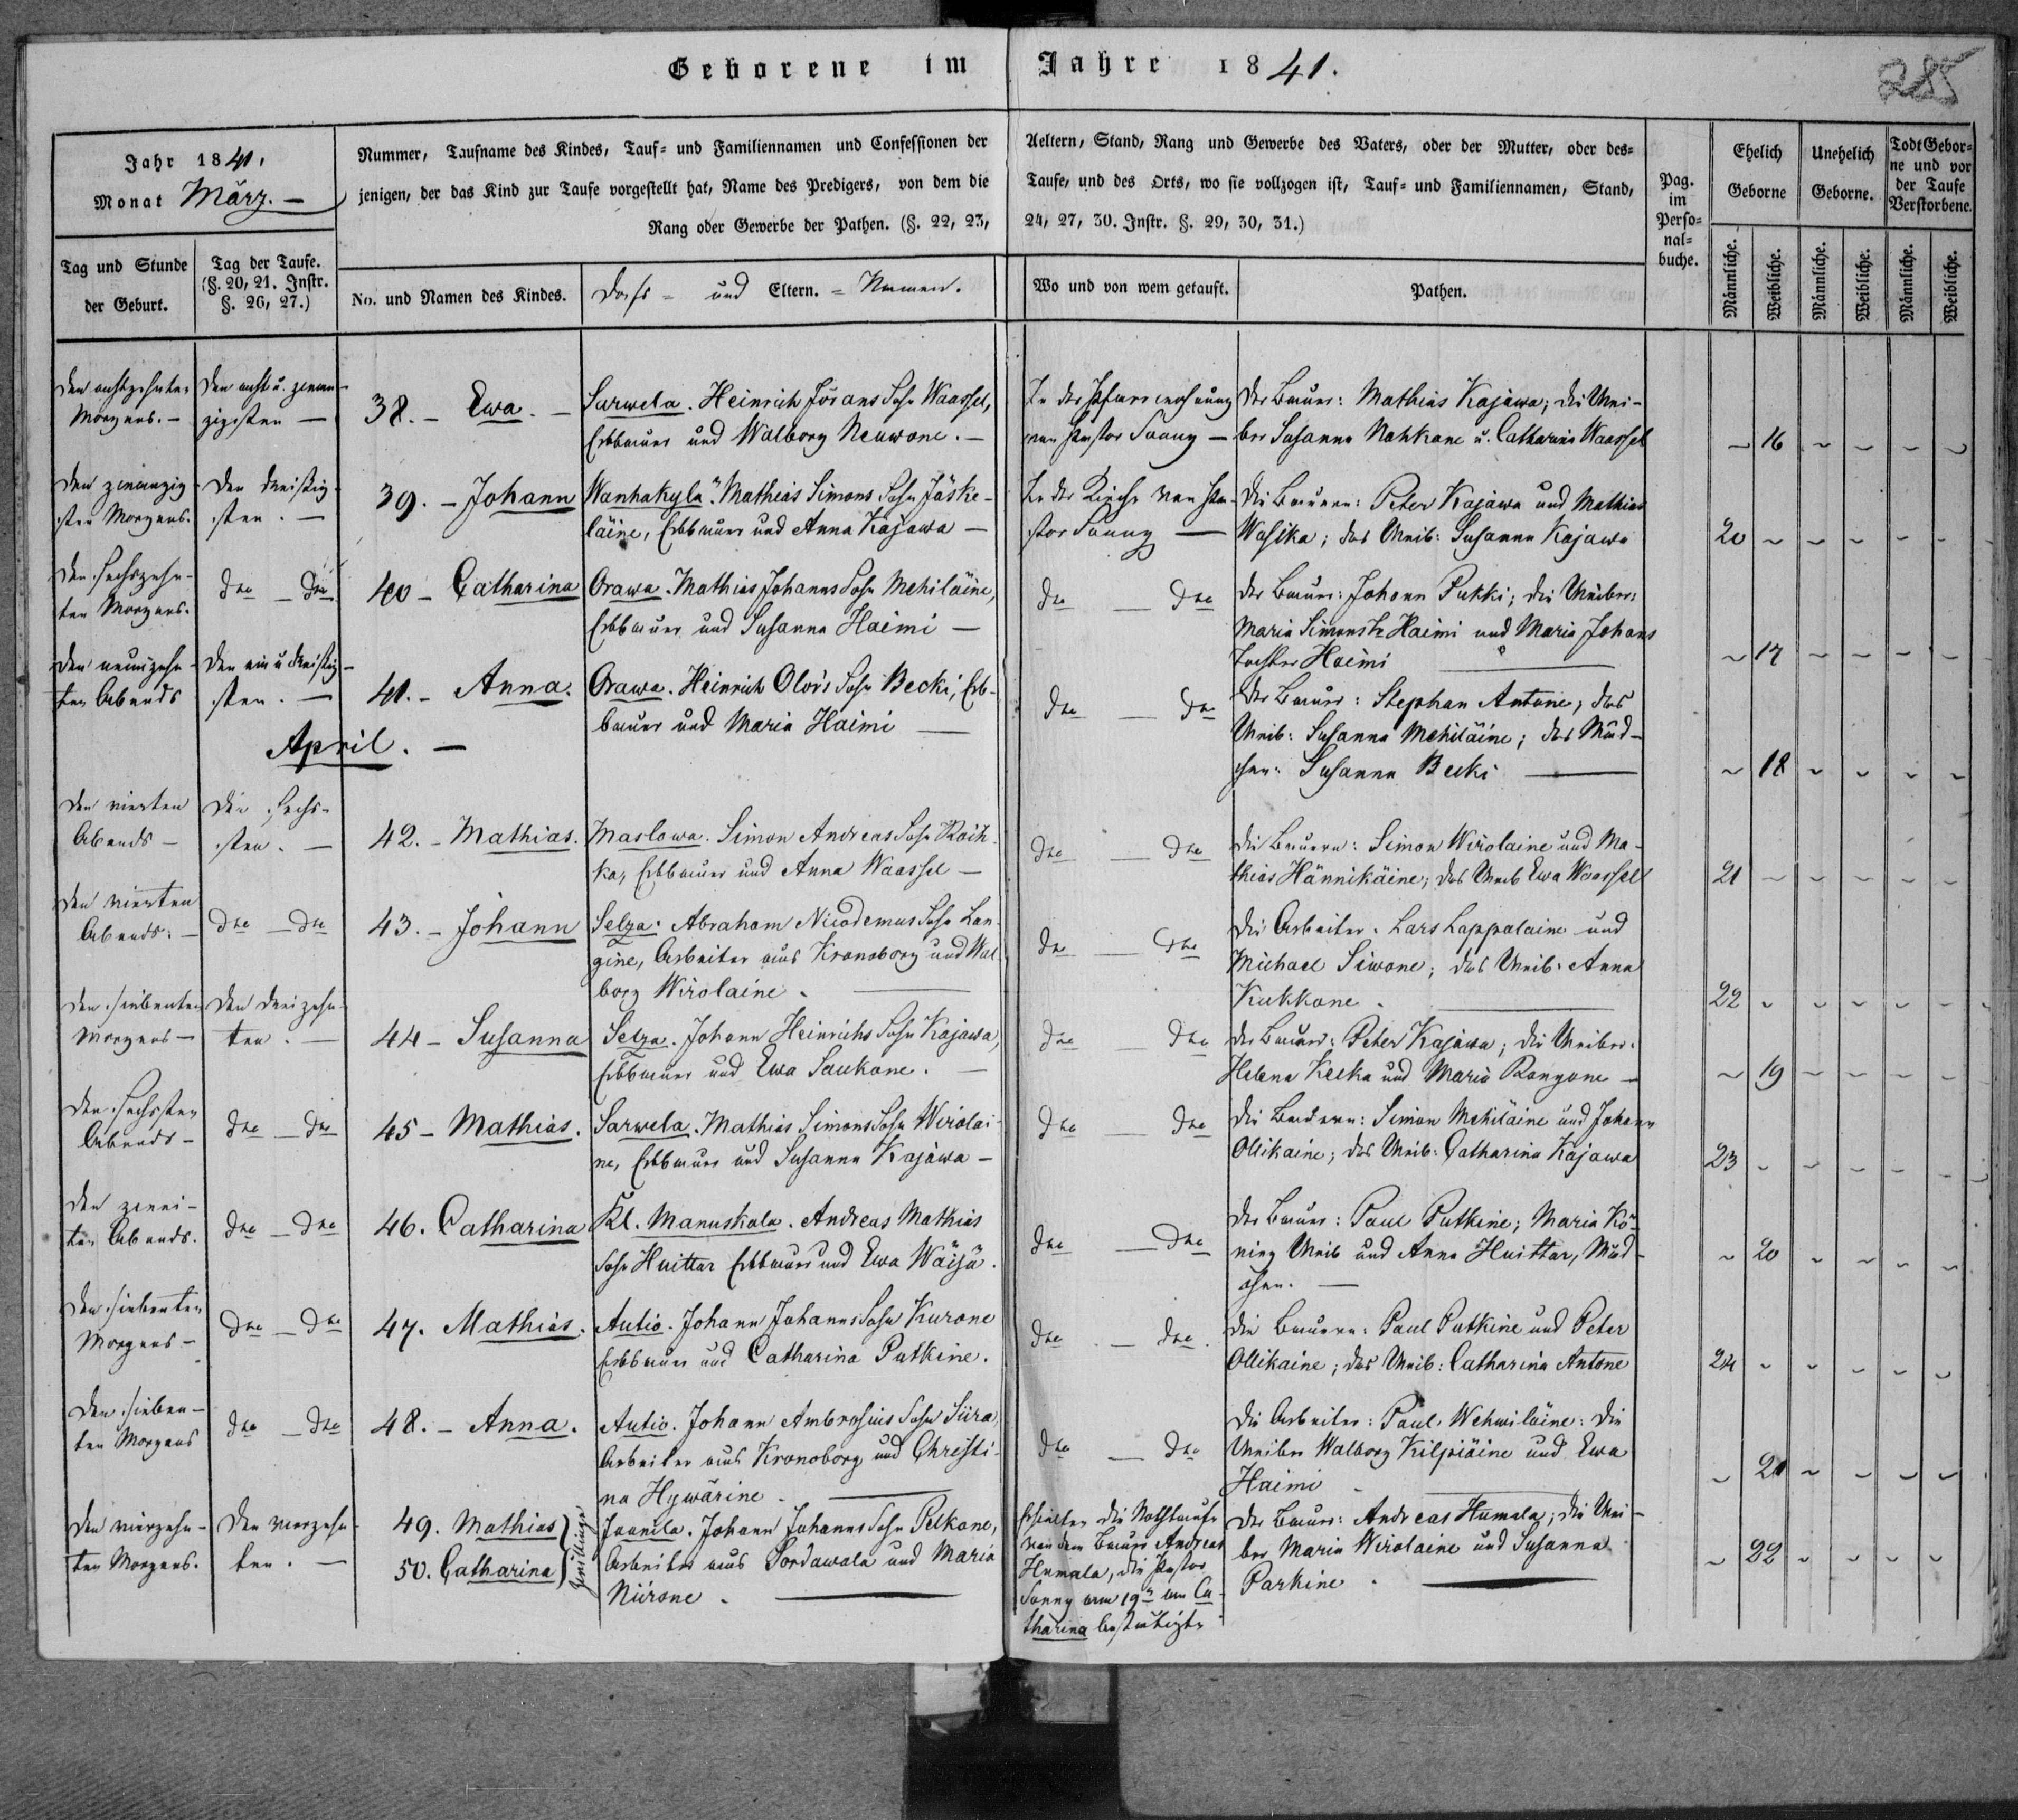 Geborene im Jahre 1841.
285
Jahr 1841,
Monat März. —
Nummer, Taufname des Kindes, Tauf- und Familiennamen und Confessionen der
jenigen, der das Kind zur Taufe vorgestellt hat, Name des Predigers, von dem die
Rang oder Gewerbe der Pathen. (§. 22, 23,
Aeltern, Stand, Rang und Gewerbe des Vaters, oder der Mutter, oder des-
Taufe, und des Orts, wo sie vollzogen ist, Tauf- und Familiennamen, Stand,
24, 27, 30. Instr. §. 29, 30, 31.)
Pag.
im
Perso-
nal-
buche.
Ehelich
Geborne
Unehelich
Geborne.
Todt Gebor-
ne und vor
der Taufe
Verstorbene.
Tag und Stunde
der Geburt.
Tag der Taufe.
(§. 20, 21. Instr.
§. 26, 27.)
No. und Namen des Kindes.
Dorfs- und Eltern.-Namen.
Wo und von wem getauft.
Pathen.
Männliche.
Weibliche.
Männliche.
Weibliche.
Männliche.
Weibliche.
Den achtzehnten
Morgens. —
Den acht u. zwan-
zigsten —
38. — Ewa. —
Sarwela. Heinrich Jörans Sohn Waassel,
Erbbauer und Walborg Neuwone. —
In der Pfarrwohnung
von Pastor Sanny —
Der Bauer: Mathias Kajawa; die Wei-
ber Susanna Nahkane u. Catharina Waassel
~ 16 ~ ~ ~ ~
Den zwanzig-
sten Morgens.
Den dreißig-
sten. —
39. — Johann
Wanhakylä. Mathias Simons Sohn Jäske-
läine, Erbbauer und Anna Kajawa —
In der Kirche von Pa-
stor Sanny —
Die Bauern: Peter Kajawa und Mathias
Wasika; das Weib: Susanna Kajawa
20 ~ ~ ~ ~ ~
Den sechszehn-
ten Morgens.
dto — dto
40 — Catharina
Orawa. Mathias Johanns Sohn Mehiläine,
Erbbauer und Susanna Haimi —
dto — dto
Der Bauer: Johann Pukki; die Weiber:
Maria Simonstr Haimi und Maria Johans
Tochter Haimi —
~ 17 ~ ~ ~ ~
Den neunzehn-
ten Abends
Den ein u dreißig-
sten. —
41. — Anna.
Orawa. Heinrich Olofs Sohn Becki, Erb-
bauer und Maria Haimi —
dto — dto
Der Bauer: Stephan Antone; das
Weib: Susanna Mehiläine; das Mäd-
chen: Susanna Becki —
~ 18 ~ ~ ~ ~
April. —
Den vierten
Abends —
Den sechs-
sten. —
42. — Mathias.
Maslowa. Simon Andreas Sohn Roih-
ka, Erbbauer und Anna Waassel —
dto — dto
Die Bauern: Simon Wirolaine und Ma-
thias Hännikäine; das Weib Ewa Waassel
21 ~ ~ ~ ~ ~
Den vierten
Abends. —
dto — dto
43. — Johann
Selza. Abraham Nicodemus Sohn Lan-
gine, Arbeiter aus Kronoborg und Wal-
borg Wirolaine. —
dto — dto
Die Arbeiter. Lars Lappalaine und
Michael Siwone; das Weib. Anna
Kukkone. —
22 ~ ~ ~ ~ ~
Den siebenten
Morgens —
Den dreizehn-
ten. —
44 — Susanna
Selza. Johann Heinrichs Sohn Kajawa,
Erbbauer und Ewa Saukone. —
dto — dto
Der Bauer: Peter Kajawa; die Weiber.
Helena Keeka und Maria Rongone —
~ 19 ~ ~ ~ ~
Den sechsten
Abends —
dto — dto
45 — Mathias.
Sarwela. Mathias Simons Sohn Wirolai-
ne, Erbbauer und Susanna Kajawa —
dto — dto
Die Bauern: Simon Mehiläine und Johann
Ollikaine; das Weib: Catharina Kajawa
23 ~ ~ ~ ~ ~
Den zwei-
ten Abends.
dto — dto
46. Catharina
Kl. Manuskala. Andreas Mathias
Sohn Huittar Erbbauer und Ewa Wäisä.
dto — dto
Der Bauer: Paul Putkine; Maria Kö-
ning Weib und Anna Huittar, Mäd-
chen. —
~ 20 ~ ~ ~ ~
Den siebenten
Morgens —
dto — dto
47. Mathias.
Autio. Johann Johanns Sohn Kurone
Erbbauer und Catharina Putkine.
dto — dto.
Die Bauern: Paul Putkine und Peter
Ollikaine; das Weib: Catharina Antone
24 ~ ~ ~ ~ ~
Den sieben-
ten Morgens
dto — dto
48. — Anna.
Autio. Johann Ambrosius Sohn Siira,
Arbeiter aus Kronoborg und Christi-
na Hywärine. —
dto — dto
Die Arbeiter: Paul Wehwiläine: die
Weiber Walborg Kilpiäine und Ewa
Haimi. —
~ 21 ~ ~ ~ ~
Den vierzehn-
ten Morgens.
Den vierzehn-
ten. —
49. Mathias
50. Catharina
Zwillinge
Jaanila. Johann Johanns Sohn Pelkone,
Arbeiter aus Sordawala und Maria
Niirone. —
Erhielten die Nothtaufe
von dem Bauer Andreas
Humala, die Pastor
Sanny am 19n an Ca-
tharina bestätigte
Der Bauer: Andreas Humala; die Wei-
ber Maria Wirolaine und Susanna
Parkine. —
~ 22 ~ ~ ~ ~